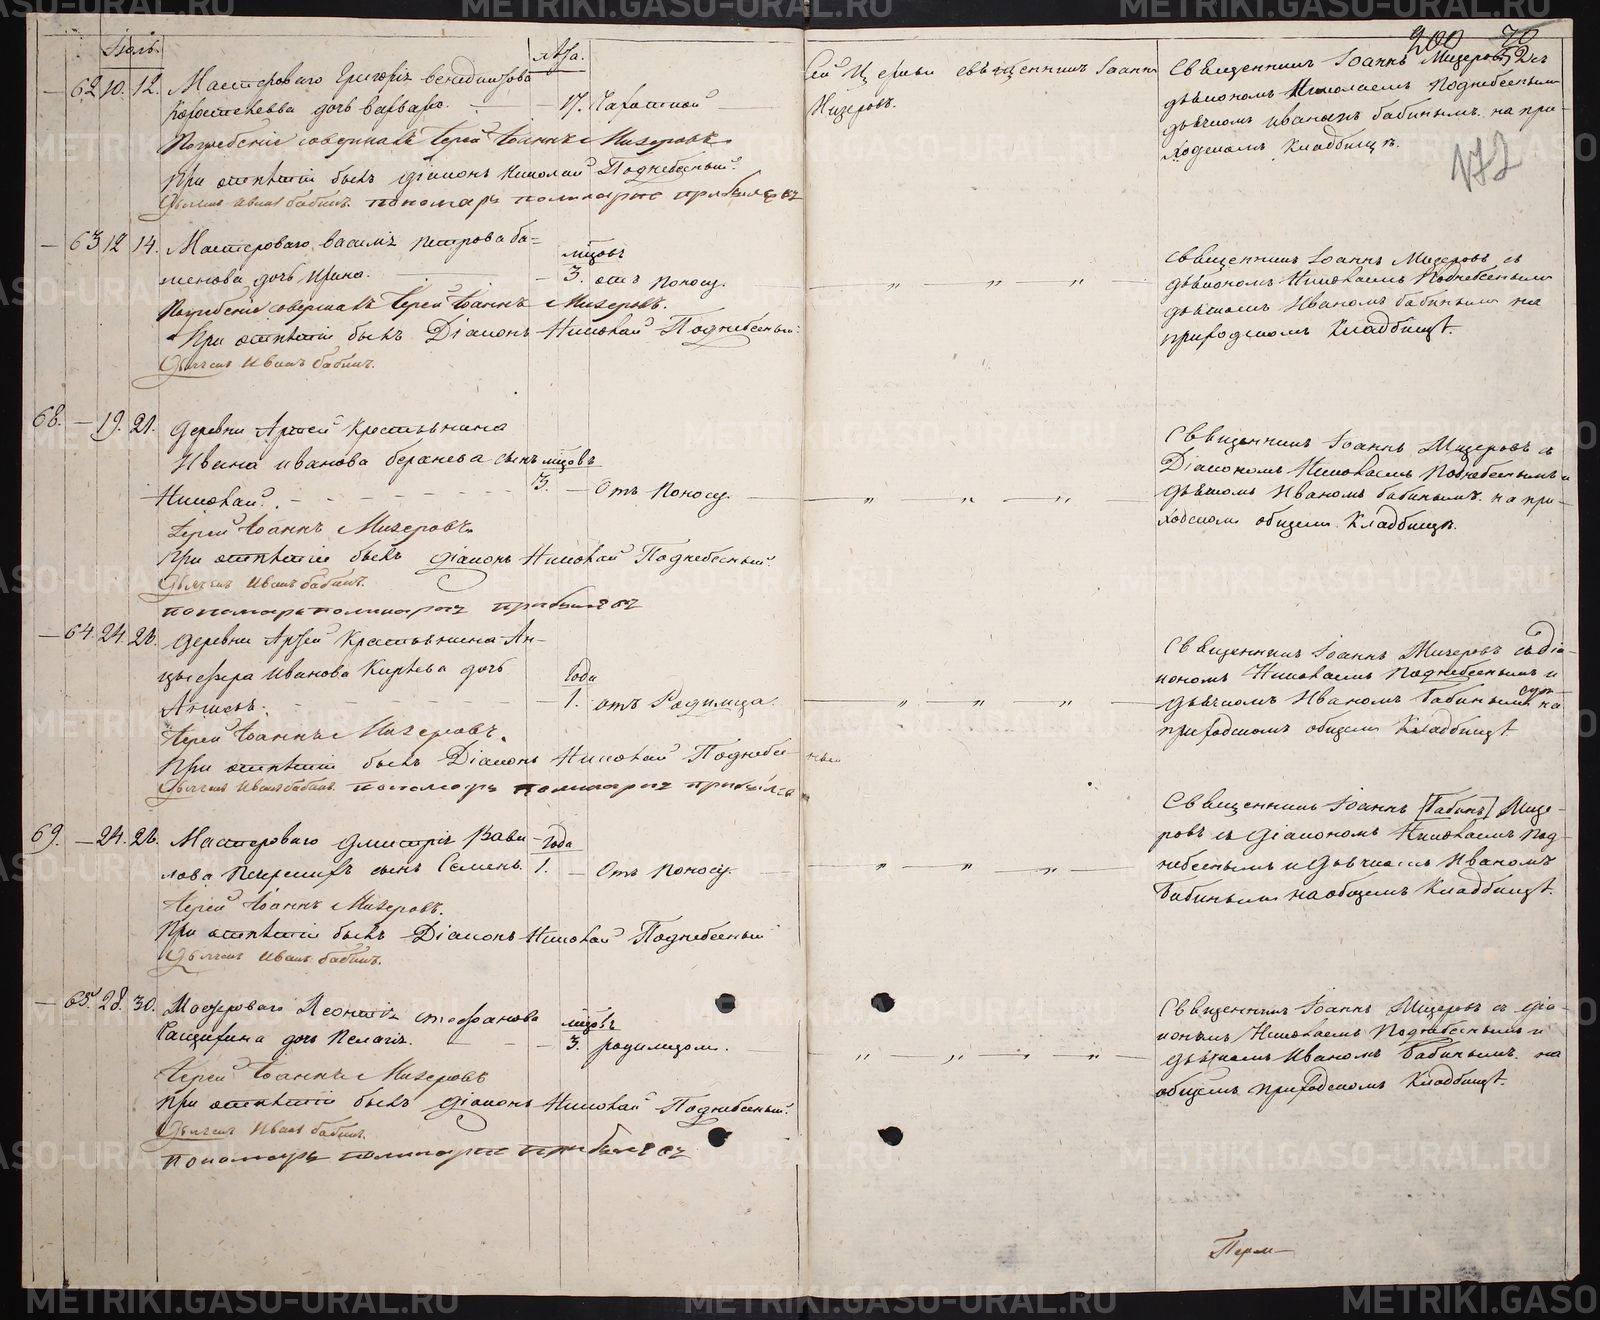 METRIKI.GASO-URAL.RU
Іюль.
лѣта.
62 10. 12. Мастероваго Григорія
дочь Варвара. 17. Чахоткой
Погребеніе совершалъ Іерей Іоаннъ Мизеровъ.
При отпѣтіи былъ діаконъ Николай Поднебесный.
Дьячекъ Иванъ Бабинъ. пономарь поликарпъ
63 12 14. Мастероваго Василія Петрова Ба=
женова дочь Ирина. мѣсяцовъ 3. отъ поносу.
Погребеніе совершалъ Іерей Іоаннъ Мизеровъ.
При отпѣтіи былъ Діаконъ Николай Поднебесный.
Дьячекъ Иванъ Бабинъ.
68. 19. 21. Деревни Артей Крестьянина
Ивана Иванова сынъ
Николай. 3. Отъ поносу.
Іерей Іоаннъ Мизеровъ.
При отпѣтіи былъ діаконъ Николай Поднебесный.
Дьячекъ Иванъ Бабинъ.
пономарь поликарпъ
64. 24. 26. Деревни Артей Крестьянина Ан-
Иванова Кирѣева дочь
года 1. отъ Родимца.
Іерей Іоаннъ Мизеровъ.
При отпѣтіи былъ Діаконъ Николай Поднебесный
Дьячекъ Иванъ Бабинъ. пономарь поликарпъ
69. 24. 26. Мастероваго Дмитрія Вави
лова сынъ Семенъ. года 1. Отъ поносу.
Іерей Іоаннъ Мизеровъ.
При отпѣтіи былъ Діаконъ Николай Поднебесный
Дьячекъ Иванъ Бабинъ.
65. 28. 30. Мастероваго Леонтія Стефанова
дочь Пелагія. 3. родимцом.
Іерей Іоаннъ Мизеровъ
При отпѣтіи былъ діаконъ Николай Поднебесный.
Дьячекъ Иванъ Бабинъ.
пономарь поликарпъ
200 70
172
сей Церкви священникъ Іоаннъ
Мизеровъ.
Священникъ Іоаннъ Мизеровъ съ
дьякономъ Николаемъ Поднебеснымъ
дьячкомъ Иваномъ Бабинымъ. на при-
ходскомъ Кладбищѣ.
Священникъ Іоаннъ Мизеровъ съ
дьякономъ Николаемъ Поднебеснымъ
дьячкомъ Иваномъ Бабинымъ на
приходскомъ Кладбищѣ.
Священникъ Іоаннъ Мизеровъ съ
Діакономъ Николаемъ Поднебеснымъ и
дьячкомъ Иваномъ Бабинымъ. на при-
ходскомъ общемъ Кладбищѣ.
Священникъ Іоаннъ Мизеровъ съ Діа-
кономъ Николаемъ Поднебеснымъ и
дьячкомъ Иваномъ Бабинымъ на
приходскомъ общемъ Кладбищѣ
Священникъ Іоаннъ [Бабинъ] Мизе-
ровъ съ Діакономъ Николаемъ Под-
небеснымъ и Дьячкомъ Иваномъ
Бабинымъ на общемъ Кладбищѣ.
Священникъ Іоаннъ Мизеровъ съ діа-
кономъ Николаемъ Поднебеснымъ и
дьячкомъ Иваномъ Бабинымъ. на
общемъ приходскомъ Кладбищѣ.
Перм-